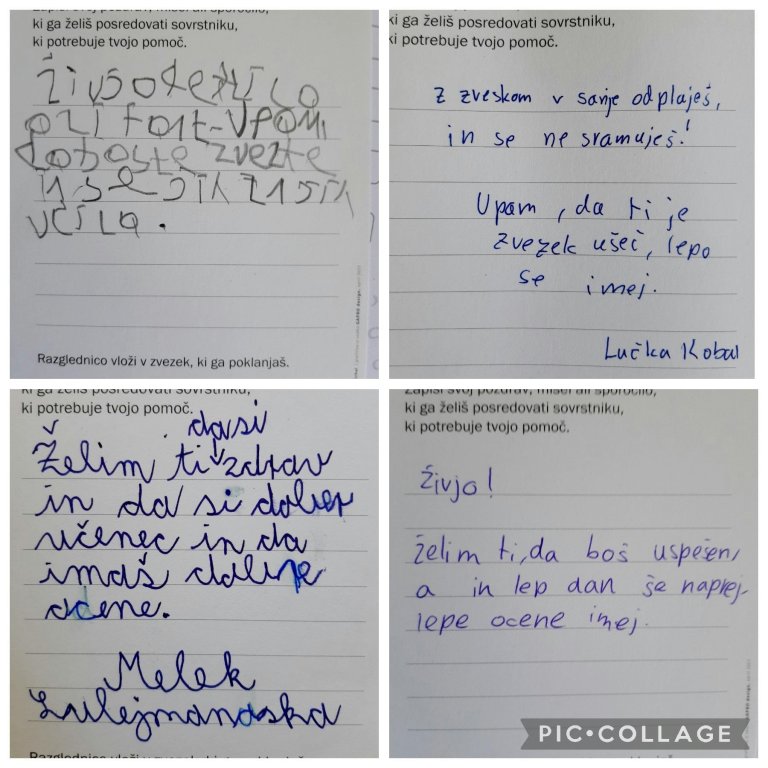 Zapiši svoj pozdrav, misel ali sporočilo,
ki ga želiš posredovati sovrstniku,
ki potrebuje tvojo pomoč.
UPAM
ZVEZKE
IN SE
UČILA.
Razglednico vloži v zvezek, ki ga poklanjaš.
ki ga želiš posredovati sovrstniku,
ki potrebuje tvojo pomoč.
Z zveskom v sanje odplaješ,
in se ne sramuješ!
Upam, da ti je
zvezek ušeč, lepo
se imej.
Lučka Kobal
ki ga želiš posredovati sovrstniku,
ki potrebuje tvojo pomoč.
da si
Želim ti zdrav
in da si dober
učenec in da
imaš dobre
ocene.
Melek
Sulejmanoska
Razglednico vloži v zvezek, ki ga poklanjaš.
Zapiši svoj pozdrav, misel ali sporočilo,
ki ga želiš posredovati sovrstniku,
ki potrebuje tvojo pomoč.
Živjo!
želim ti, da boš uspešen,
a in lep dan še naprej
lepe ocene imej.
PIC•COLLAGE